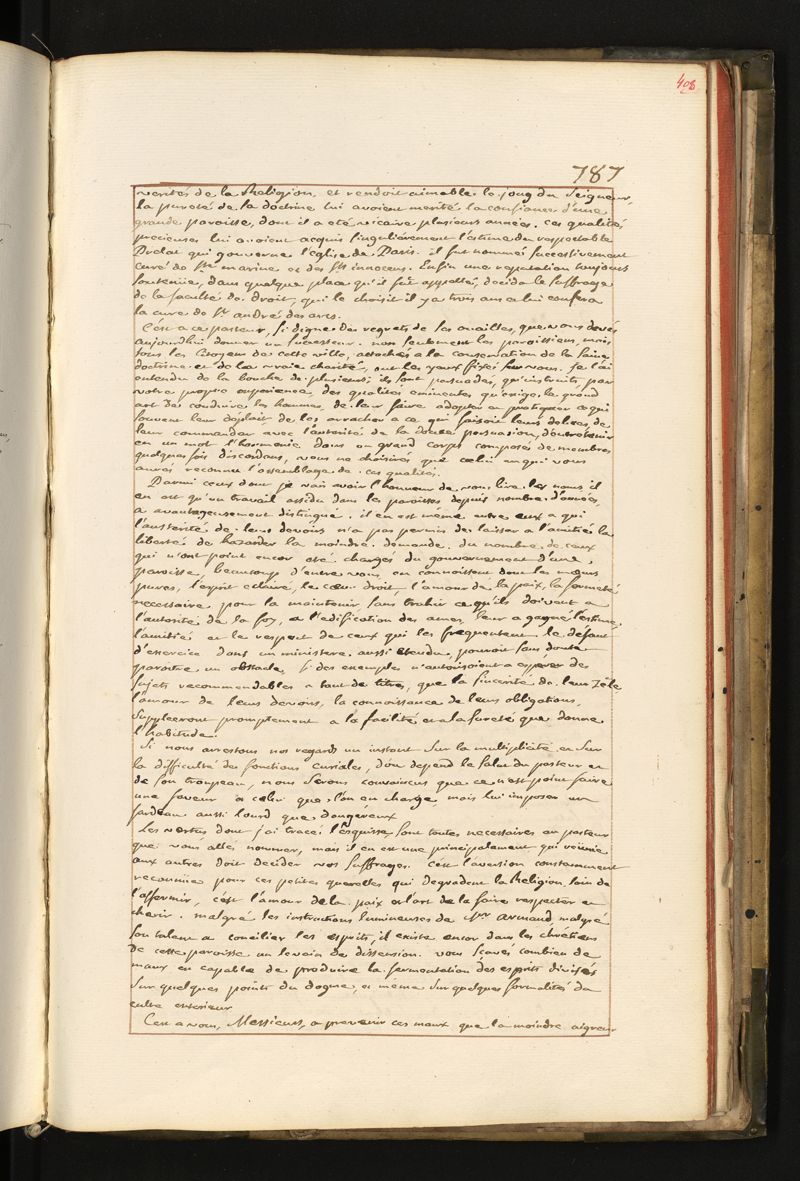 408
787
verités de la Religion, et rendoit aimable le joug du Seigneur,
la pureté de la doctrine lui avoient merité la confiance d'une
grande paroisse, dont il a eté vicaire plusieurs années. ces qualités
precieuses lui avoient acquis singulièrement l'estime du respectable
Prelat qui gouverne l'eglise de Paris. il fut nommé successivement
curé de Ste marine et des Sts innocens. Enfin une reputation toujours
soutenue, dans quelque place qu'il fut appellé, decida le suffrage
de la faculté de droit, qui le choisit il y a trois ans et lui confera
la cure de St andré des arcs.
C'est a ce pasteur, si digne des regrets de ses ouailles, que vous devés
aujourdhui donner un successeur. non seulement les paroissiens, mais
tous les Citoyens de cette ville, attachés a la conservation de la saine
doctrine et de la vraie charité, ont les yeux fixés sur vous. Je l'ai
entendu de la bouche de plusieurs; ils sont persuadés, qu'instruits par
votre propre experience des qualités eminentes qu'exige le grand
art de conduire les hommes, de leur faire adopter et pratiquer ce qui
souvent leur deplait de les arracher a ce qui faisoit leurs delices, de
leur commander avec l'autorité de la douce persuasion, d'entretenir
en un mot l'harmonie dans un grand corps composé de membres
quelques fois discordans, vous ne choisirés que celui en qui vous
aurés reconnu l'assemblage de ces qualités.
Parmi ceux dont je vais avoir l'honneur de vous lire les noms il
en est qu'un travail assidu dans les paroisses depuis nombre d'années,
a avantageusement distingué. il en est même entre eux a qui
l'austerité de leurs devoirs n'a pas permis de laisser a l'amitié la
liberté de hazarder la moindre demande. du nombre de ceux
qui n'ont point encor eté chargés du gouvernement d'une
paroisse, beaucoup d'entre vous en connoissent dont les mœurs
pures, l'esprit eclairé, le cœur droit, l'amour de la paix, la fermeté
necessaire pour la maintenir sans trahir ce qu'ils doivent a
l'autorité de la foy, a l'edification des ames, leur a gagné l'estime,
l'amitié et le respect de ceux qui les frequentent. le defaut
d'exercice dans un ministere aussi etendu, pouroit sans doute
paroitre un obstacle, si des exemples n'autorisoient a esperer des
sujets recommendables a tant de titres, que la sincerité de leur zèle
l'amour de leurs devoirs, la connoissance de leurs obligations,
suppleeront promptement a la facilité et a la sureté que donne
l'habitude.
Si nous arrestons nos regards un instant sur la multiplicité et sur
la difficulté des fonctions curiales, d'ou depend le salut du pasteur et
de son troupeau, nous serons convaincus que ce n'est point faire
une faveur a celui que l'on en charge mais lui imposer un
fardeau aussi lourd que dangereux
Les vertus dont j'ai tracé l'esquisse sont toutes necessaires au pasteur
que vous allés nommer, mais il en est une principalement qui reunie
aux autres doit decider vos suffrages. c'est l'aversion constamment
reconnüe pour ces petites querelles qui degradent la Religion loin de
l'affermir, c'est l'amour de la paix et l'art de la faire respecter et
cherir. malgré les instructions lumineuses de Mr armand malgré
son talent a concilier les esprits, il existe encor dans les chrétiens
de cette paroisse un levain de dissension. vous sçavés combien de
maux est capable de produire la fermentation des esprits divisés
sur quelques points du dogme, et même sur quelques formalités du
culte exterieur
C'est a vous, Messieurs, a prevenir ces maux que la moindre aigreur